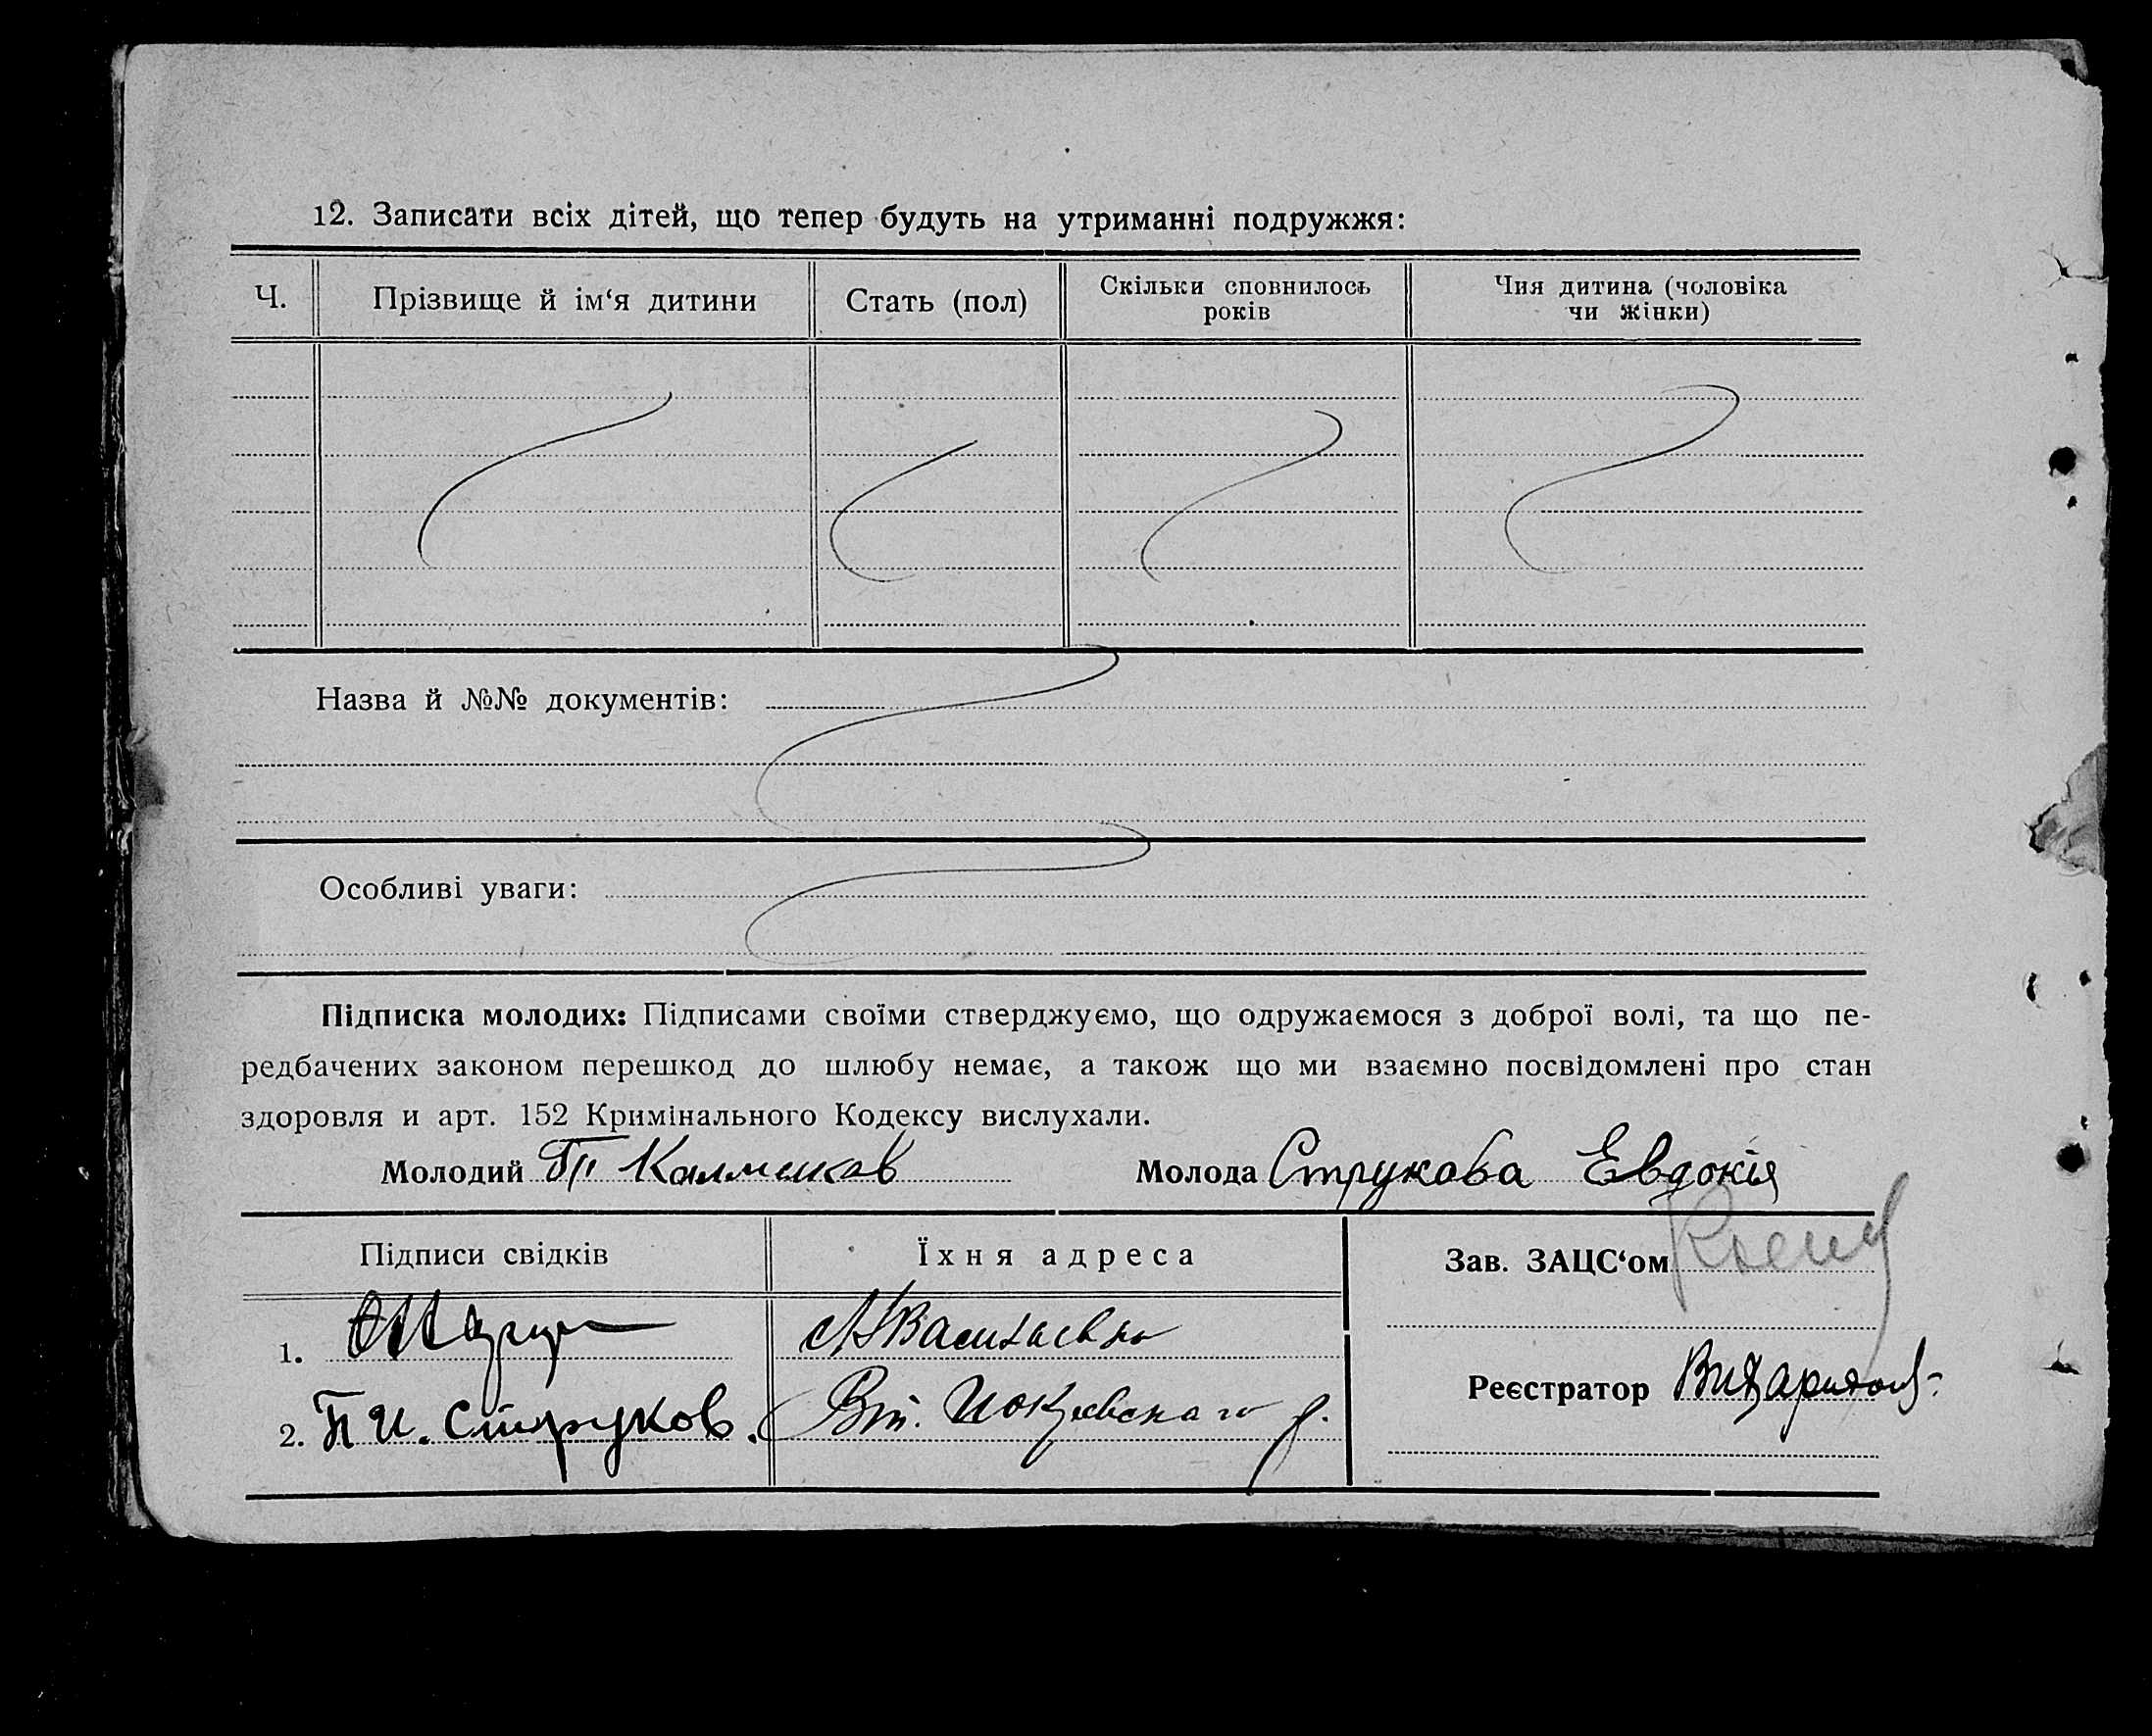 12. Записати всіх дітей, що тепер будуть на утриманні подружжя:
Ч. Прізвище й ім‘я дитини Стать (пол) Скільки сповнилось років Чия дитина (чоловіка чи жінки)
Назва й №№ документів:
Особливі уваги:
Підписка молодих: Підписами своїми стверджуємо, що одружаємося з доброї волі, та що пе-
редбачених законом перешкод до шлюбу немає, а також що ми взаємно посвідомлені про стан
здоровля и арт. 152 Кримінального Кодексу вислухали.
Молодий Молода Струкова Евдокія
Підписи свідків Їхня адреса Зав. ЗАЦС‘ом
1.
2. П И. Струков.
Реєстратор